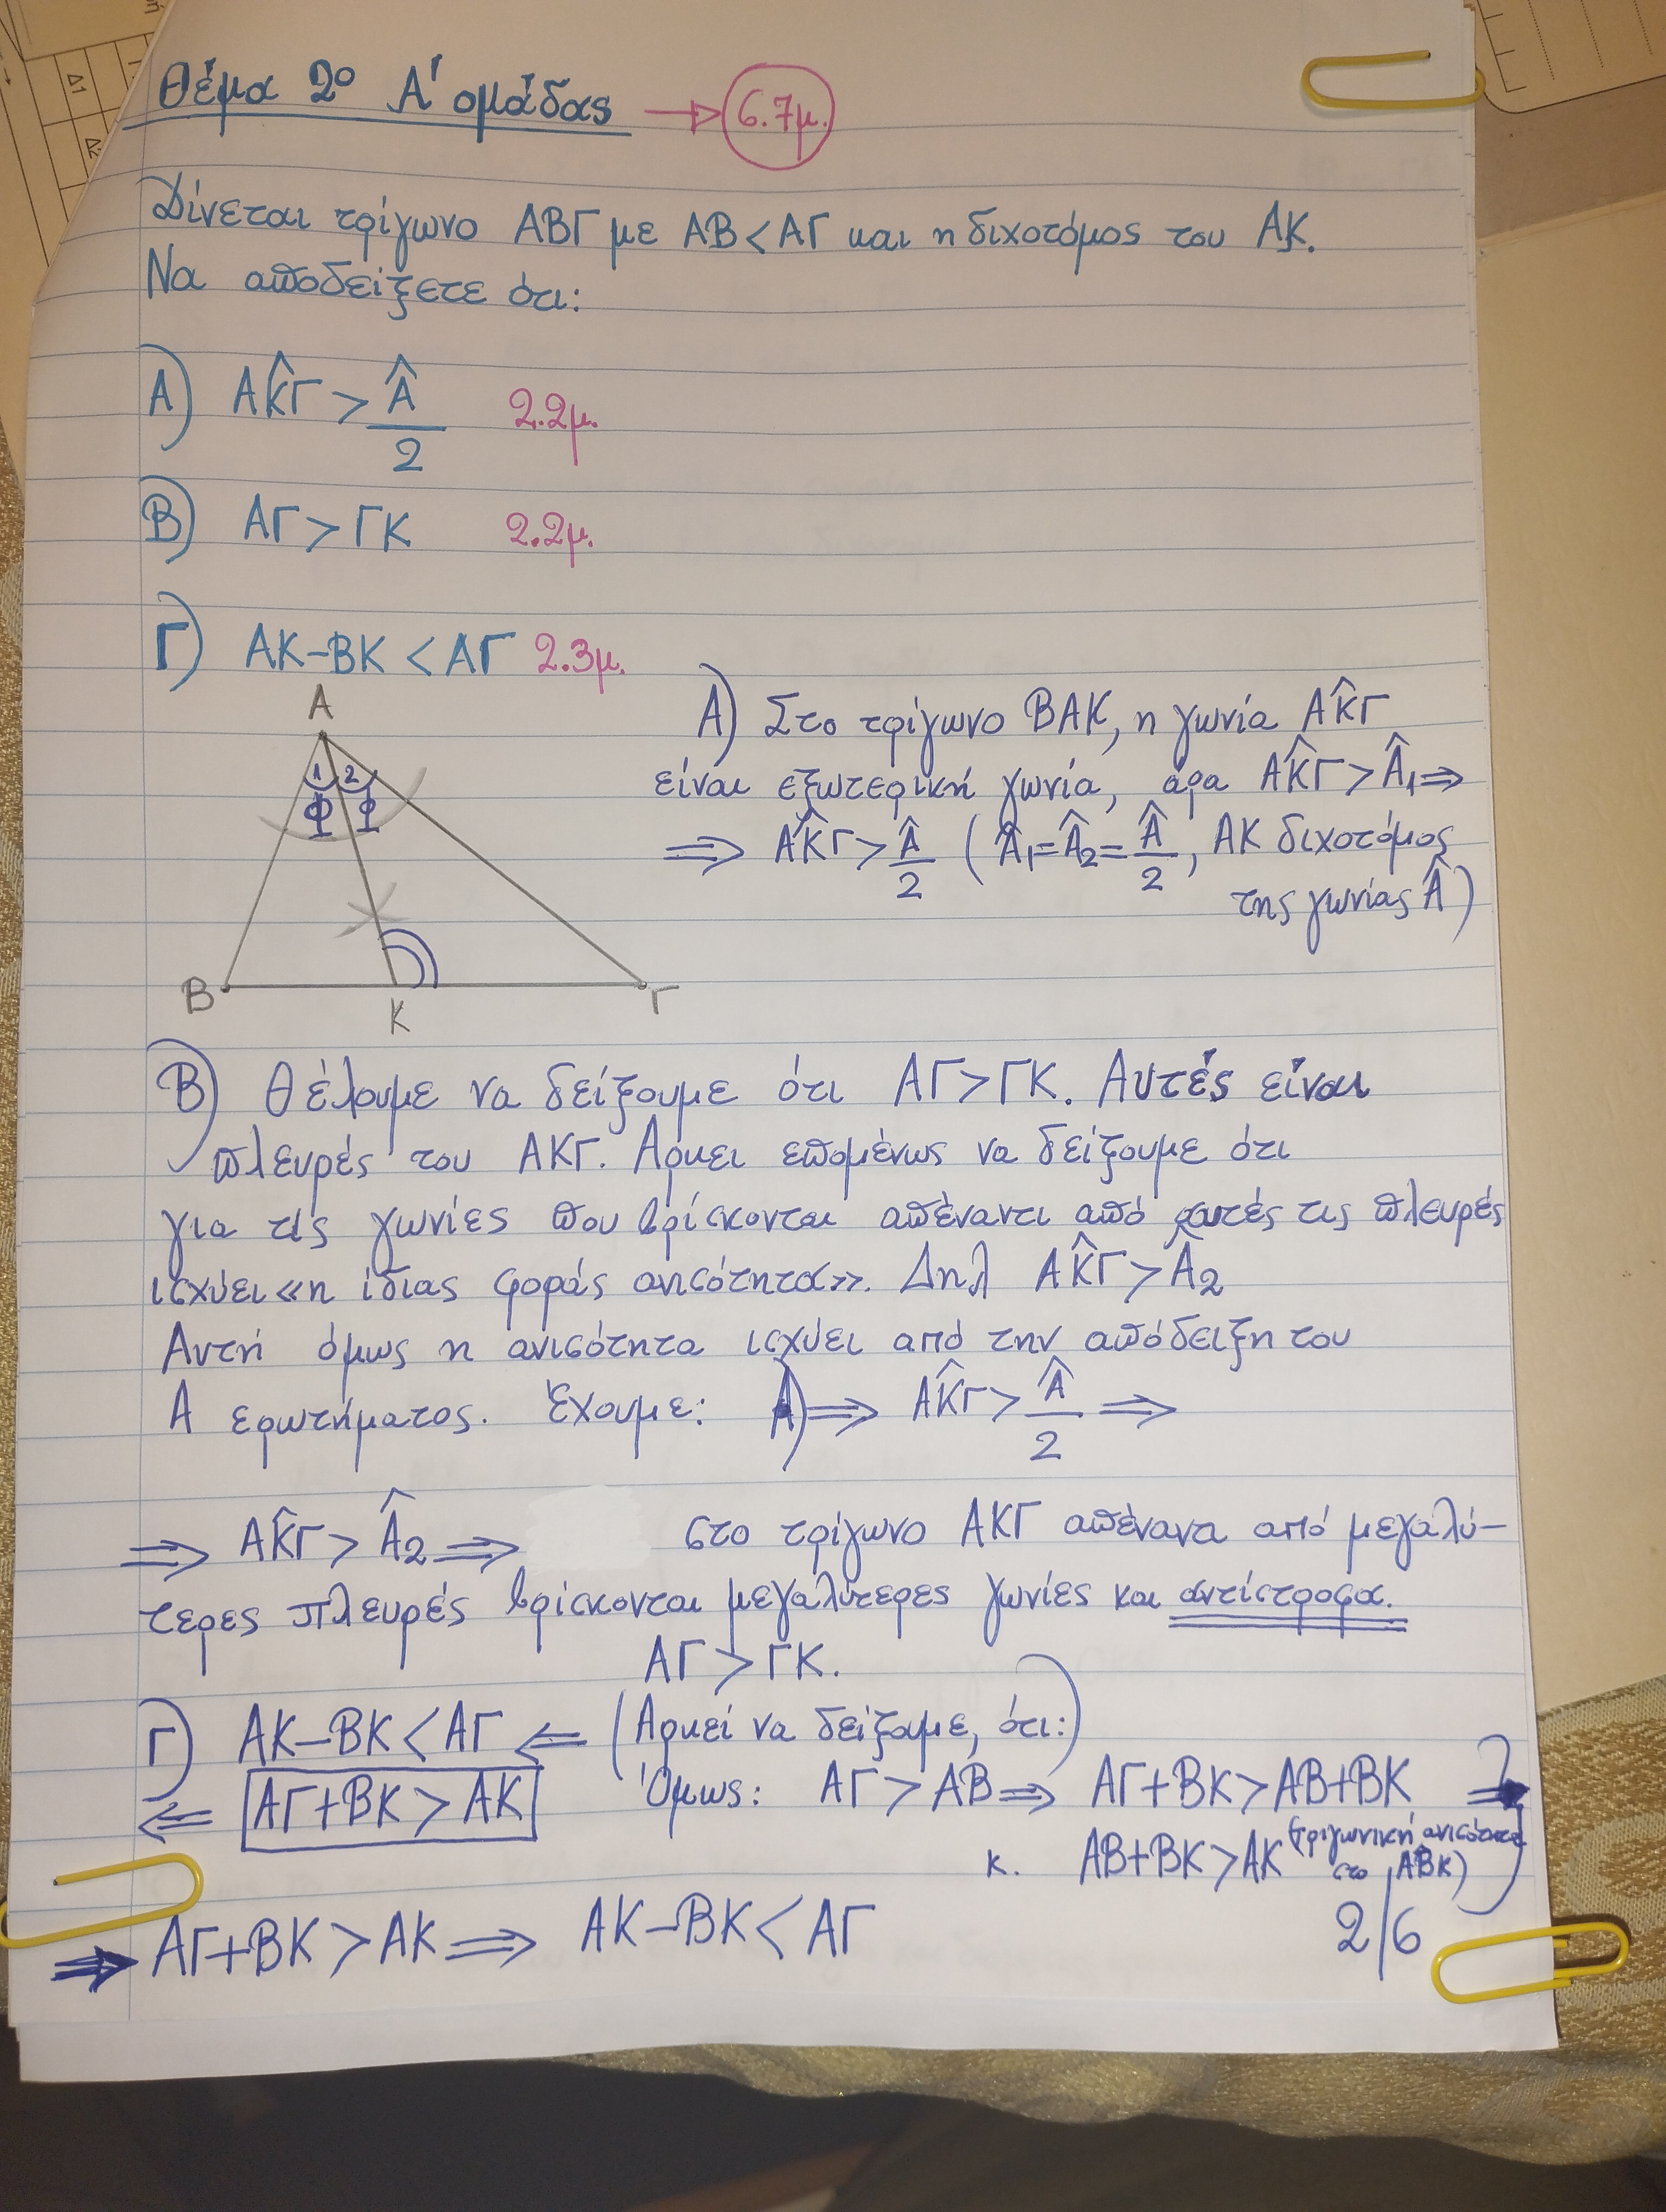 Δ1
Δ2
Θέμα 2ο Α' ομάδας → 6.7μ.
Δίνεται τρίγωνο ΑΒΓ με ΑΒ<ΑΓ και η διχοτόμος του ΑΚ.
Να αποδείξετε ότι:
Α) ΑK̂Γ > Â/2 2.2μ.
Β) ΑΓ>ΓΚ 2.2μ.
Γ) ΑΚ-ΒΚ <ΑΓ 2.3μ.
Α
1 2
φ φ
Β Κ Γ
Α) Στο τρίγωνο ΒΑΚ, η γωνία ΑK̂Γ
είναι εξωτερική γωνία, άρα ΑK̂Γ>Â₁⇒
⇒ ΑK̂Γ>Â/2 (Â₁=Â₂=Â/2, ΑΚ διχοτόμος
της γωνίας Â)
Β) Θέλουμε να δείξουμε ότι ΑΓ>ΓΚ. Αυτές είναι
πλευρές του ΑΚΓ. Αρκει επομένως να δείξουμε ότι
για τις γωνίες που βρίσκονται απέναντι από αυτές τις πλευρές
ισχύει «η ίδιας φοράς ανισότητα». Δηλ ΑK̂Γ>Â₂
Αυτή όμως η ανισότητα ισχύει από την απόδειξη του
Α ερωτήματος. Έχουμε: Α)⇒ ΑK̂Γ>Â/2 ⇒
⇒ ΑK̂Γ>Â₂⇒ στο τρίγωνο ΑΚΓ απέναντι από μεγαλύ-
τερες πλευρές βρίσκονται μεγαλύτερες γωνίες και αντίστροφα.
ΑΓ>ΓΚ.
Γ) ΑΚ-ΒΚ<ΑΓ ⇐ (Αρκεί να δείξουμε, ότι:)
⇐ ΑΓ+ΒΚ>ΑΚ Όμως: ΑΓ>ΑΒ⇒ ΑΓ+ΒΚ>ΑΒ+ΒΚ ⇒
κ. ΑΒ+ΒΚ>ΑΚ (τριγωνική ανισότητα
στο ΑΒΚ)
⇒ ΑΓ+ΒΚ>ΑΚ⇒ ΑΚ-ΒΚ<ΑΓ
2/6